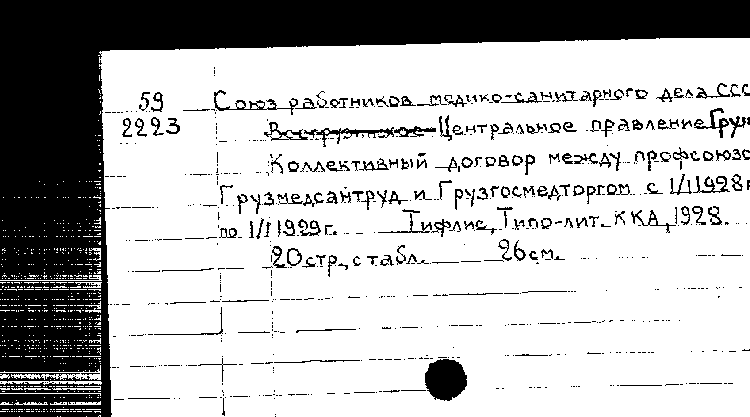 59 Союз работников медико-санитарного дела ССС
2223 Центральное правление Груз
Коллективный договор между профсоюзо
Грузмедсантруд и Грузгосмедторгом с 1/I 1928г
по 1/I 1929г. Тифлис, Типо-лит. ККА, 1928.
20 стр., с табл. 26 см.